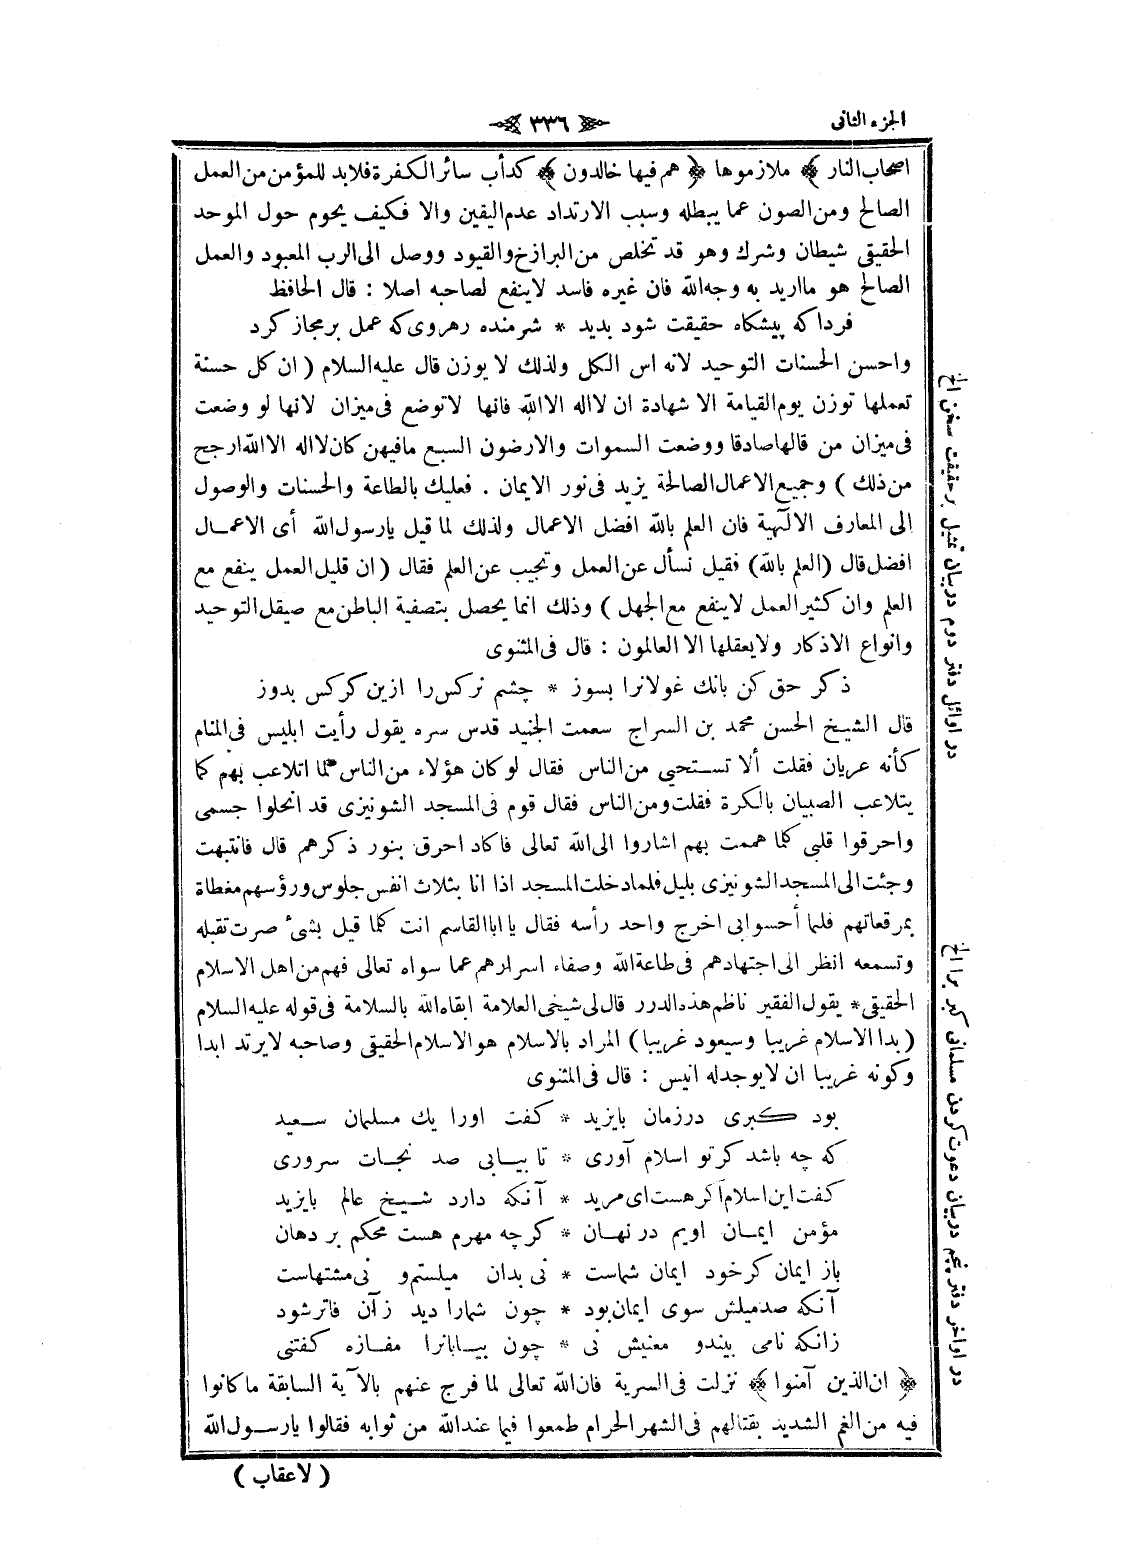 الجزء الثانى
٣٣٦
اصحاب النار ﴾ ملازموها ﴿ هم فيها خالدون ﴾ كدأب سائر الكفرة فلابد للمؤمن من العمل
الصالح ومن الصون عما يبطله وسبب الارتداد عدم اليقين والا فكيف يحوم حول الموحد
الحقيقى شيطان وشرك وهو قد تخلص من البرازخ والقيود ووصل الى الرب المعبود والعمل
الصالح هو مااريد به وجه الله فان غيره فاسد لاينفع لصاحبه اصلا : قال الحافظ
فرداكه پيشكاه حقيقت شود بديد * شرمنده رهروى كه عمل بر مجاز كرد
واحسن الحسنات التوحيد لانه اس الكل ولذلك لا يوزن قال عليه السلام ( ان كل حسنة
تعملها توزن يوم القيامة الا شهادة ان لااله الاالله فانها لاتوضع فى ميزان لانها لو وضعت
فى ميزان من قالها صادقا ووضعت السموات والارضون السبع مافيهن كان لااله الاالله ارجح
من ذلك ) وجميع الاعمال الصالحة يزيد فى نور الايمان . فعليك بالطاعة والحسنات والوصول
الى المعارف الآلهية فان العلم بالله افضل الاعمال ولذلك لما قيل يارسول الله أى الاعمال
افضل قال (العلم بالله) فقيل نسأل عن العمل وتجيب عن العلم فقال ( ان قليل العمل ينفع مع
العلم وان كثير العمل لاينفع مع الجهل ) وذلك انما يحصل بتصفية الباطن مع صيقل التوحيد
وانواع الاذكار ولايعقلها الا العالمون : قال فى المثنوى
ذكر حق كن بانك غولانرا بسوز * چشم نركس را ازين كركس بدوز
قال الشيخ الحسن محمد بن السراج سمعت الجنيد قدس سره يقول رأيت ابليس فى المنام
كأنه عريان فقلت ألا تستحيى من الناس فقال لو كان هؤلاء من الناس لما اتلاعب بهم كما
يتلاعب الصبيان بالكرة فقلت ومن الناس فقال قوم فى المسجد الشونيزى قد انحلوا جسمى
واحرقوا قلبى كلما هممت بهم اشاروا الى الله تعالى فاكاد احرق بنور ذكرهم قال فانتبهت
وجئت الى المسجد الشونيزى بليل فلما دخلت المسجد اذا انا بثلاث انفس جلوس ورؤسهم مغطاة
بمرقعاتهم فلما أحسوا بى اخرج واحد رأسه فقال يا اباالقاسم انت كلما قيل بشئ صرت تقبله
وتسمعه انظر الى اجتهادهم فى طاعة الله وصفاء اسرارهم عما سواه تعالى فهم من اهل الاسلام
الحقيقى * يقول الفقير ناظم هذه الدرر قال لى شيخى العلامة ابقاه الله بالسلامة فى قوله عليه السلام
( بدا الاسلام غريبا وسيعود غريبا ) المراد بالاسلام هو الاسلام الحقيقى وصاحبه لايرتد ابدا
وكونه غريبا ان لايوجد له انيس : قال فى المثنوى
بود كبرى درزمان بايزيد * كفت اورا يك مسلمان سعيد
كه چه باشد كر تو اسلام آورى * تا بيابى صد نجات سرورى
كفت اين اسلام اكر هست اى مريد * آنكه دارد شيخ عالم بايزيد
مؤمن ايمان اويم در نهان * كرچه مهرم هست محكم بر دهان
باز ايمان كر خود ايمان شماست * نى بدان ميلستم و نى مشتهاست
آنكه صد ميلش سوى ايمان بود * چون شمارا ديد زآن فاتر شود
زانكه نامى بيند و معنيش نى * چون بيابانرا مفازه كفتنى
﴿ ان الذين آمنوا ﴾ نزلت فى السرية فان الله تعالى لما فرج عنهم بالآية السابقة ماكانوا
فيه من الغم الشديد بقتالهم فى الشهر الحرام طمعوا فيما عند الله من ثوابه فقالوا يارسول الله
( لاعقاب )
در اوائل دفتر دوم دربيان تمثيل بر حقيقت سخن الخ
در اواخر دفتر پنجم دربيان دعوت كردن مسلمانى كبر برا الخ